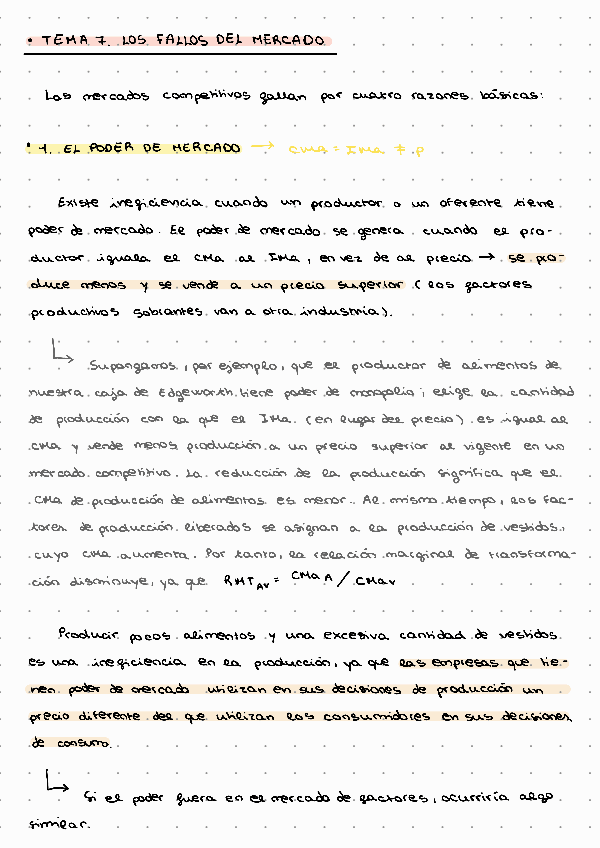 • TEMA 7. LOS FALLOS DEL MERCADO
Los mercados competitivos fallan por cuatro razones básicas:
1. EL PODER DE MERCADO → CMa = IMa ≠ P
Existe ineficiencia cuando un productor o un oferente tiene
poder de mercado. El poder de mercado se genera cuando el pro-
ductor iguala el CMa al IMa, en vez de al precio → se pro-
duce menos y se vende a un precio superior (los factores
productivos sobrantes van a otra industria).
Supongamos, por ejemplo, que el productor de alimentos de
nuestra caja de Edgeworth tiene poder de monopolio; elige la cantidad
de producción con la que el IMa (en lugar del precio) es igual al
CMa y vende menos producción a un precio superior al vigente en un
mercado competitivo. La reducción de la producción significa que el
CMa de producción de alimentos es menor. Al mismo tiempo, los fac-
tores de producción liberados se asignan a la producción de vestidos,
cuyo CMa aumenta. Por tanto, la relación marginal de transforma-
ción disminuye, ya que RMT AV = CMa A / CMa V
Producir pocos alimentos y una excesiva cantidad de vestidos
es una ineficiencia en la producción, ya que las empresas que tie-
nen poder de mercado utilizan en sus decisiones de producción un
precio diferente del que utilizan los consumidores en sus decisiones
de consumo.
Si el poder fuera en el mercado de factores, ocurriría algo
similar.